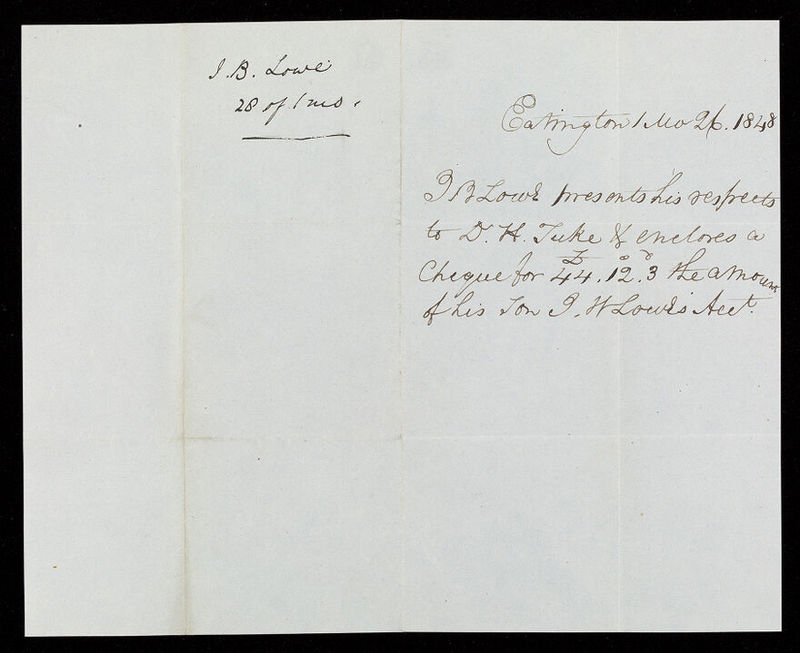 J. B. Lowe
28 of 1 mo.
Eatington 1 Mo 26. 1848
J B Lowe presents his respects
to D. H. Tuke & encloses a
Cheque for £44. 12s. 3d the amount
of his Son J. W Lowe's Acct.